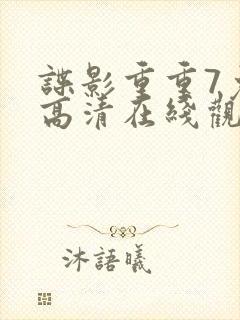 諜影重重7免
高清在綫觀
沐語曦